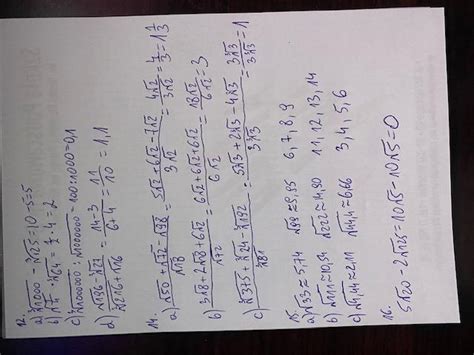 12.
a) ∛1000 - ∛125 = 10 - 5 = 5
b) √¼ · ∛64 = ½ · 4 = 2
c) ∛1000000 : √1000000 = 100 : 1000 = 0,1
d) (√196 - ∛27)/(∛216 + √16) = (14 - 3)/(6 + 4) = 11/10 = 1,1
14.
a) (√50 + √72 - √98)/√18 = (5√2 + 6√2 - 7√2)/3√2 = 4√2/3√2 = 4/3 = 1⅓
b) (3√8 + 2√8 + 6√2)/√72 = (6√2 + 6√2 + 6√2)/6√2 = 18√2/6√2 = 3
c) (∛375 + ∛24 - ∛192)/∛81 = (5∛3 + 2∛3 - 4∛3)/3∛3 = 3∛3/3∛3 = 1
15.
a) √33 ≈ 5,74 √99 ≈ 9,95 6, 7, 8, 9
b) √111 ≈ 10,54 √222 ≈ 14,90 11, 12, 13, 14
c) √4,44 ≈ 2,11 √44,4 ≈ 6,66 3, 4, 5, 6
16.
5√20 - 2√125 = 10√5 - 10√5 = 0